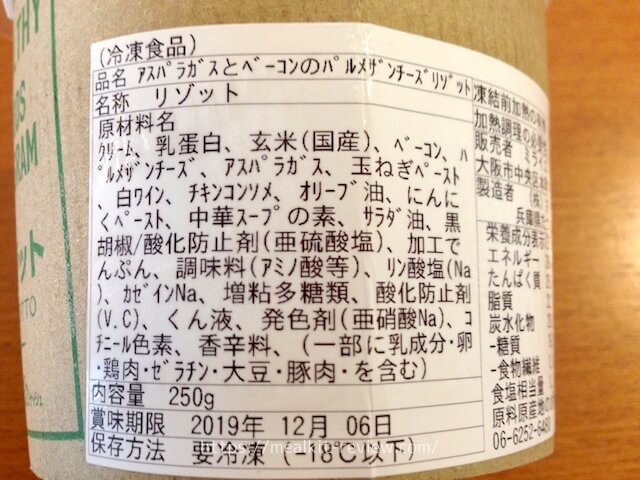 (冷凍食品)
品名 アスパラガスとベーコンのパルメザンチーズリゾット
名称 リゾット
原材料名
クリーム、乳蛋白、玄米(国産)、ベーコン、パ
ルメザンチーズ、アスパラガス、玉ねぎペースト
、白ワイン、チキンコンソメ、オリーブ油、にんに
くペースト、中華スープの素、サラダ油、黒
胡椒/酸化防止剤(亜硫酸塩)、加工で
んぷん、調味料(アミノ酸等)、リン酸塩(Na
)、カゼインNa、増粘多糖類、酸化防止剤
(V.C)、くん液、発色剤(亜硝酸Na)、コ
チニール色素、香辛料、(一部に乳成分・卵
・鶏肉・ゼラチン・大豆・豚肉・を含む)
内容量 250g
賞味期限 2019年 12月 06日
保存方法 要冷凍 (-18℃以下)
凍結前加熱の有無
加熱調理の必要
販売者 ミライ
大阪市中央区
製造者 (株)
兵庫県
栄養成分表示
エネルギー
たんぱく質
脂質
炭水化物
-糖質
-食物繊維
食塩相当量
原料原産地
06-6252-
THY
GRAM
ット
TTO
https://mealkit-review.com/